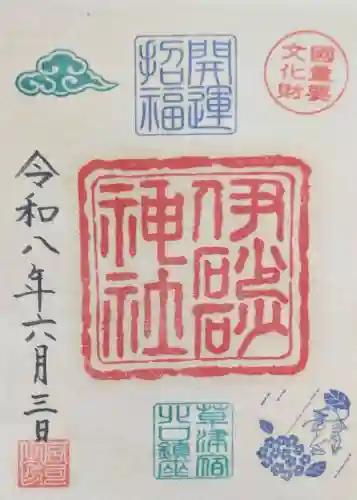 開運
招福
國重要
文化財
伊砂砂
神社
令和八年六月三日
草津宿
北口鎮座